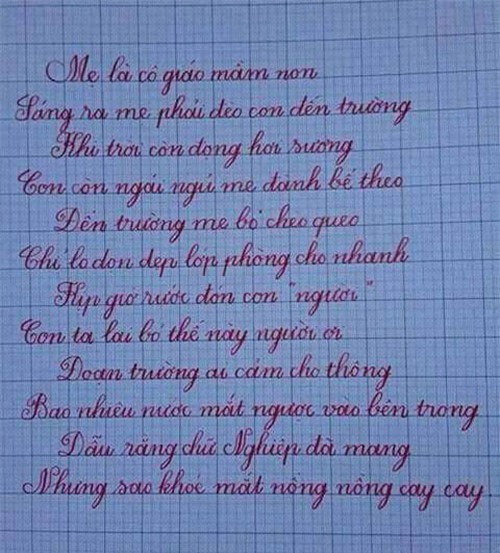 Mẹ là cô giáo mầm non
Sáng ra mẹ phải đèo con đến trường
Khi trời còn đọng hơi sương
Con còn ngái ngủ mẹ đành bế theo
Đến trường mẹ bỏ chèo queo
Chỉ lo dọn dẹp lớp phòng cho nhanh
Kịp giờ rước đón con "người"
Con ta lại bỏ thế này người ơi
Đoạn trường ai cảm cho thông
Bao nhiêu nước mắt ngược vào bên trong
Dẫu rằng chữ Nghiệp đã mang
Nhưng sao khoé mắt nồng nồng cay cay